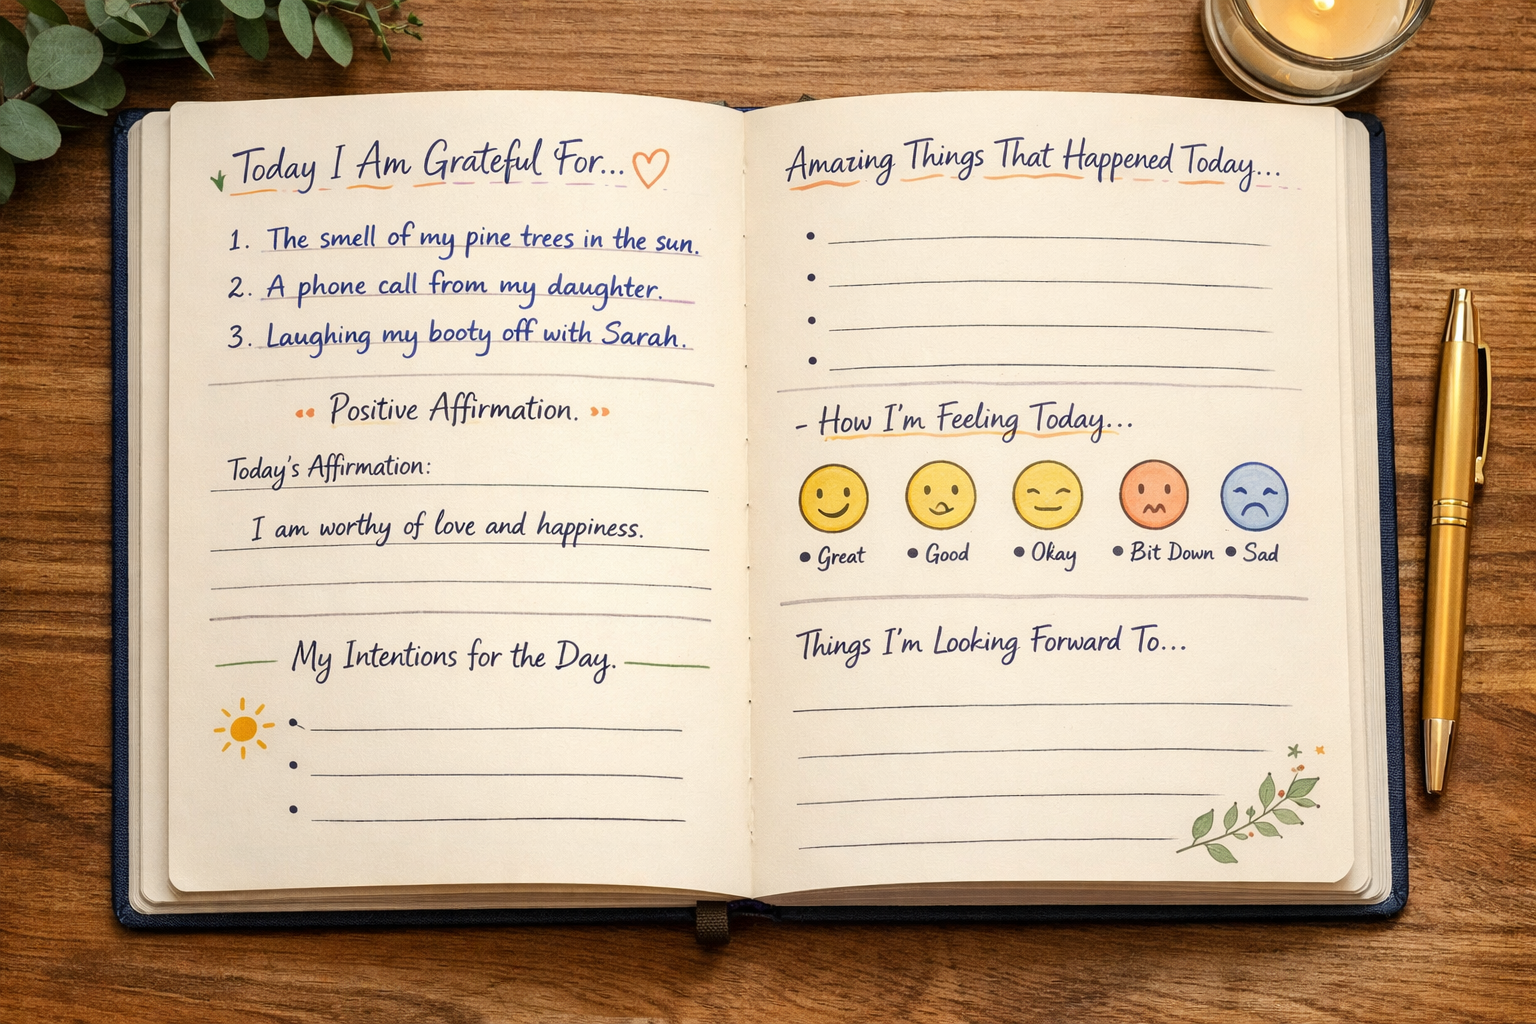 Today I Am Grateful For...
1. The smell of my pine trees in the sun.
2. A phone call from my daughter.
3. Laughing my booty off with Sarah.
Positive Affirmation.
Today's Affirmation:
I am worthy of love and happiness.
My Intentions for the Day.
Amazing Things That Happened Today...
- How I'm Feeling Today...
• Great • Good • Okay • Bit Down • Sad
Things I'm Looking Forward To...